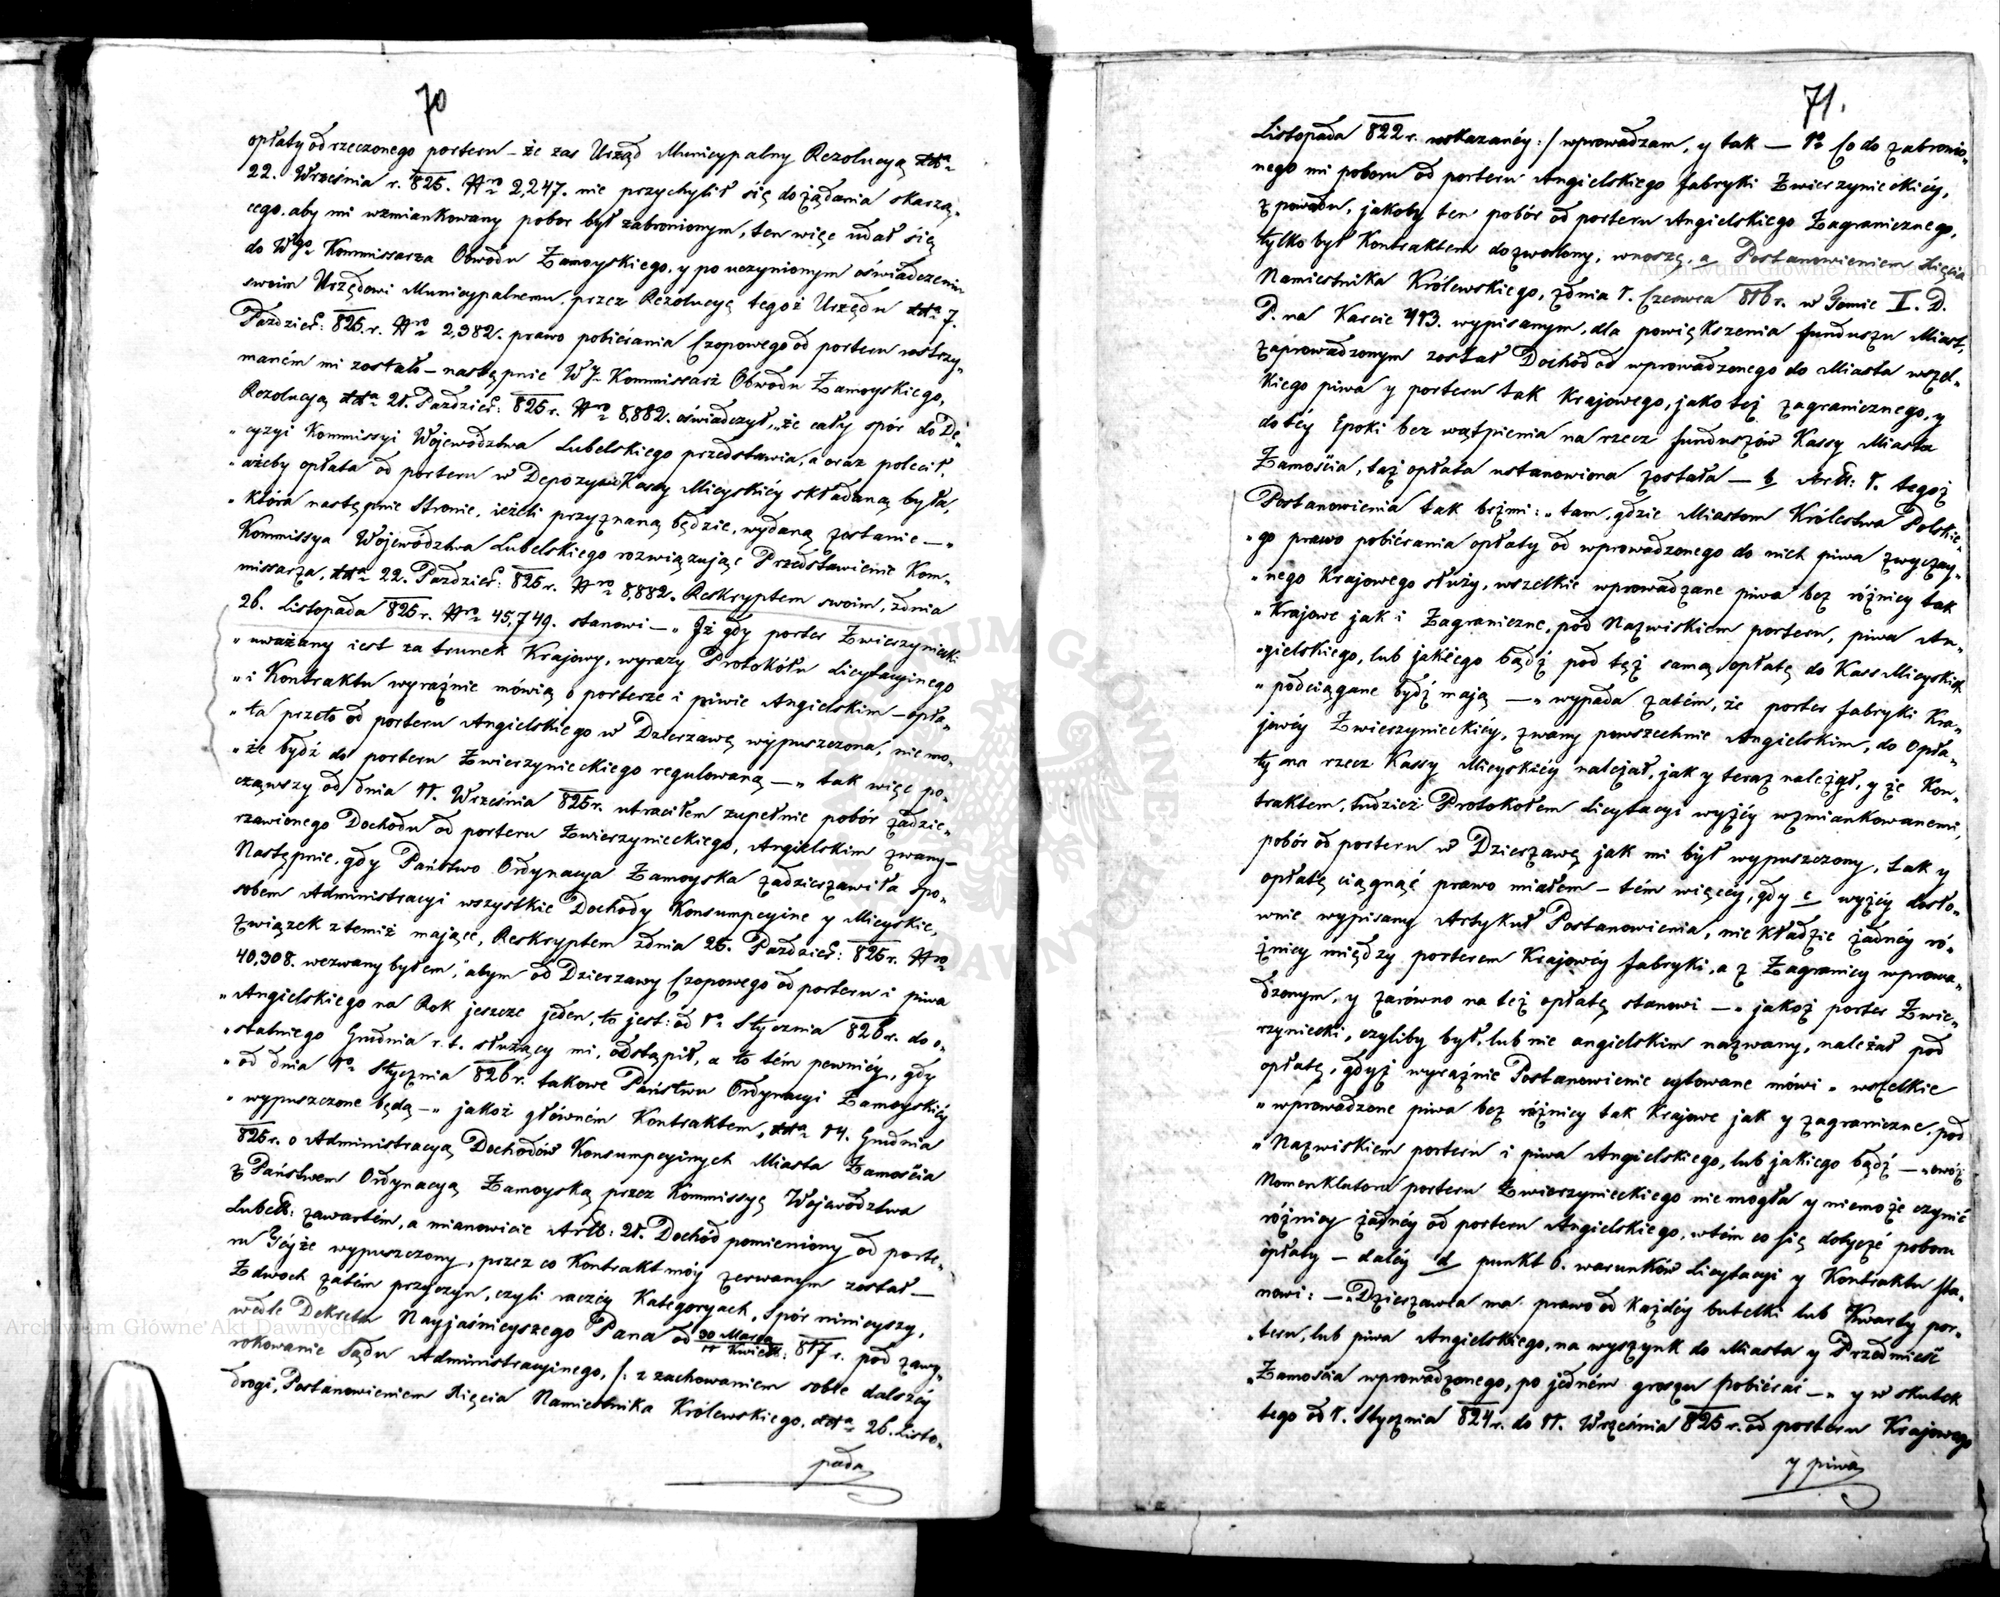 70
opłaty od rzeczonego porteru – że zas Urząd Municypalny Rezolucyą dda
22. Września r. 825. Nro 2,247. nie przychylił się do żądania skarzą„
cego. aby mi wzmiankowany pobor był zabronionym, ten więc udał się
do Wgo Kommissarza Obwodu Zamoyskiego. y po uczynionym oświadczeniu
swoim Urzędowi Municypalnemu, przez Rezolucyę tegoż Urzędu dda 7.
Paździer: 825. r. Nro 2,982. prawo pobiérania Czopowego od porteru wstrzy„
maném mi zostało – następnie WJ. Kommissarz Obwodu Zamoyskiego,
Rezolucyą dda 21. Paździer: 825 r. Nro 8,882. oświadczył, „że cały spór do De„
„cyzyi Kommissyi Województwa Lubelskiego przedstawia, a oraz polecił,
„ażeby opłata od porteru w Depozyt Kassy Mieyskiéy składaną była,
„która następnie Stronie, ieżeli przyznaną będzie, wydaną zostanie —„
Kommissya Województwa Lubelskiego rozwiązując Przedstawienie Kom„
missarza, dda 22. Paździer: 825 r. Nro 8,882. Reskryptem swoim, zdnia
26. Listopada 825 r. Nro 45,749. stanowi —„ Iż gdy porter Zwierzyniecki
„uważany iest za trunek Krajowy, wyrazy Protokółu Licytacyinego
„i Kontraktu wyraźnie mówią o porterze i piwie Angielskim – opła„
„ta przeto od porteru Angielskiego w Dzierzawę wypuszczona, nie mo„
„że bydź do porteru Zwierzynieckiego regulowaną —„ tak więc po„
cząwszy od dnia 11. Września 825 r. utraciłem zupełnie pobór zadzie„
rzawionego Dochodu od porteru Zwierzynieckiego, Angielskim zwany –
Następnie, gdy Państwo Ordynacya Zamoyska zadzierzawiła spo„
sobem Administracyi wszystkie Dochody Konsumpcyine y Mieyskie,
związek z temiż mające, Reskryptem zdnia 25. Paździer: 825 r. Nro
40,308. wezwany byłem, „abym od Dzierzawy Czopowego od porteru i piwa
„Angielskiego na Rok jeszcze jeden, to jest: od 1o Stycznia 826 r. do o„
„statniego Grudnia r. t. służący mi, odstąpił, a to tém pewniéy, gdy
„od dnia 1o Stycznia 826 r. takowe Państwu Ordynacyi Zamoyskiéy
„wypuszczone będą —„ jakoż główném Kontraktem, dda 14. Grudnia
825 r. o Administracyą Dochodów Konsumpcyinych Miasta Zamościa
z Państwem Ordynacyą Zamoyską przez Kommissyę Województwa
Lubel: zawartém, a mianowicie Artł: 21. Dochód pomieniony od porte„
ru Jéyże wypuszczony, przez co Kontrakt móy zerwanym został —
Z dwóch zatém przyczyn, czyli raczéy Kategoryach, Spór ninieyszy,
wedle Dekretu Nayjaśnieyszego Pana od 30 Marca / 11 Kwiet: 817 r. pod zawy„
rokowanie Sądu Administracyinego, /: z zachowaniem sobie dalszéy
drogi, Postanowieniem Xięcia Namiestnika Królewskiego, dda 26. Listo„
pada
71.
Listopada 822 r. wskazanéy :/ wprowadzam, y tak — 1o Co do zabronio„
nego mi poboru od porteru Angielskiego fabryki Zwierzynieckiéy,
z powodu, jakoby ten pobór od porteru Angielskiego Zagranicznego,
tylko był Kontraktem dozwolony, wnoszę, a Postanowieniem Xięcia
Namiestnika Królewskiego, zdnia 1. Czerwca 816 r. w Tomie II. D.
P. na Karcie 413. wypisanym, dla powiększenia funduszu Miast,
zaprowadzonym został Dochód od wprowadzonego do Miasta wszel„
kiego piwa y porteru tak Krajowego, jako też zagranicznego, y
do téy Epoki bez wątpienia na rzecz funduszów Kassy Miasta
Zamościa, taż opłata ustanowiona została — b Artł: 1. tegoż
Postanowienia tak brzmi: „tam, gdzie Miastom Królestwa Polskie„
„go prawo pobiérania opłaty od wprowadzonego do nich piwa zwyczay„
„nego Krajowego służy, wszelkie wprowadzane piwa bez różnicy tak
„Krajowe jak i Zagraniczne, pod Nazwiskiem porteru, piwa An„
„gielskiego, lub jakiego bądź pod tęż samą opłatę do Kass Mieyskich
„podciągane bydź mają —„ wypada zatém, że porter fabryki Kra„
jowéy Zwierzynieckiéy, zwany powszechnie Angielskim, do opła„
ty na rzecz Kassy Mieyskiéy należał, jak y teraz należy, y że Kon„
traktem, tudzież Protokołem Licytacyi wyżéy wzmiankowanemi,
pobór od porteru w Dzierzawę jak mi był wypuszczony, tak y
opłatę ciągnąć prawo miałem – tém więcéy, gdy c wyżéy dosło„
wnie wypisany Artykuł Postanowienia, nie kładzie żadnéy ró„
żnicy między porterem Krajowéy fabryki, a z Zagranicy wprowa„
dzonym, y zarówno na też opłatę stanowi —„ jakoż porter Zwie„
rzyniecki, czyliby był, lub nie angielskim nazwany, należał pod
opłatę, gdyż wyraźnie Postanowienie cytowane mówi „wszelkie
„wprowadzone piwa bez różnicy tak Krajowe jak y zagraniczne, pod
„Nazwiskiem porteru i piwa Angielskiego, lub jakiego bądź —„ owóż
Nomenklatura porteru Zwierzynieckiego nie mogła y niemoże czynić
różnicy żadnéy od porteru Angielskiego, w tém co się dotyczé poboru
opłaty – daléy d punkt 6. warunków Licytacyi y Kontraktu sta„
nowi: —„Dzierzawca ma prawo od każdéy butelki lub Kwarty por„
„teru, lub piwa Angielskiego, na wyszynk do Miasta y Przedmieść
„Zamościa wprowadzonego, po jedném groszu pobiérać —„ y w skutek
tego od 1. Stycznia 824 r. do 11. Września 825 r. od porteru Krajowego
y piwa
Archiwum Główne Akt Dawnych
Archiwum Główne Akt Dawnych